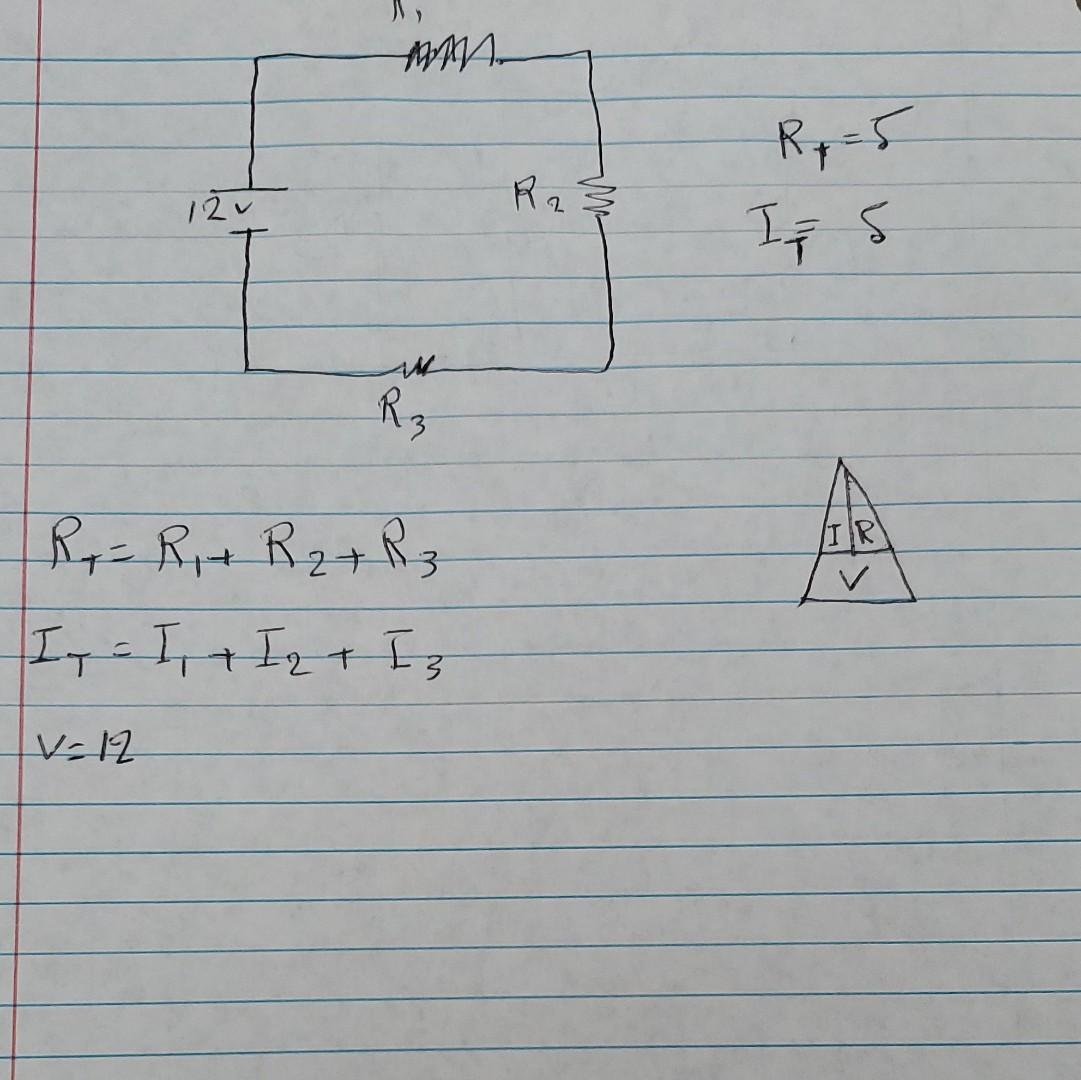 R₁
12v
R₂
R₃
R_T = 5
I_T = 5
I R
V
R_T = R₁ + R₂ + R₃
I_T = I₁ + I₂ + I₃
V = 12